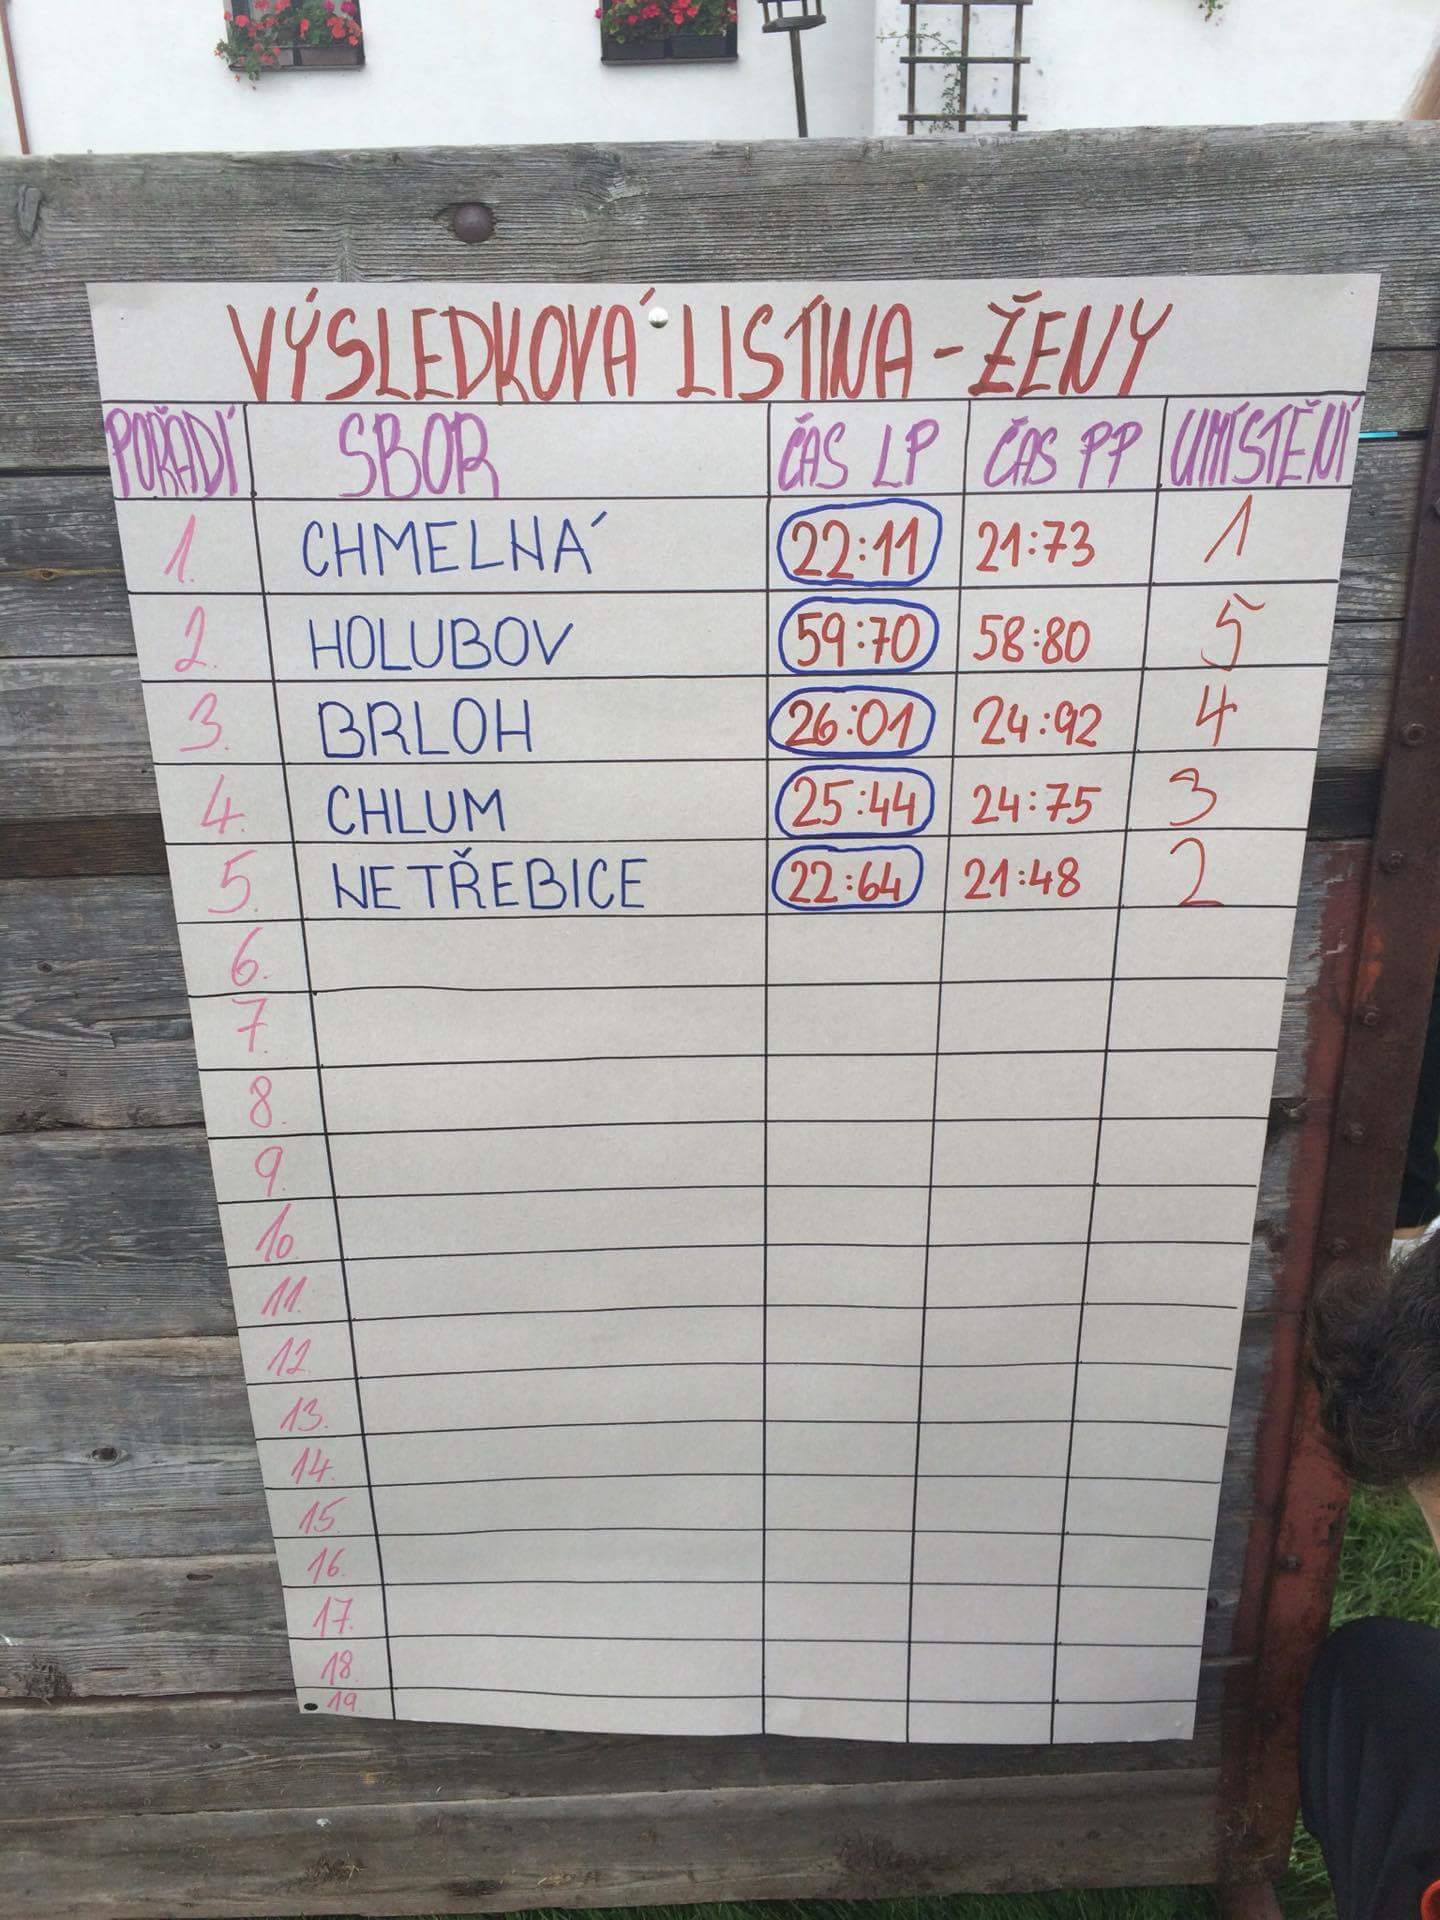 VÝSLEDKOVÁ LISTINA - ŽENY
POŘADÍ SBOR ČAS LP ČAS PP UMÍSTĚNÍ
1. CHMELNÁ 22:11 21:73 1
2. HOLUBOV 59:70 58:80 5
3. BRLOH 26:01 24:92 4
4. CHLUM 25:44 24:75 3
5. NETŘEBICE 22:64 21:48 2
6.
7.
8.
9.
10.
11.
12.
13.
14.
15.
16.
17.
18.
19.